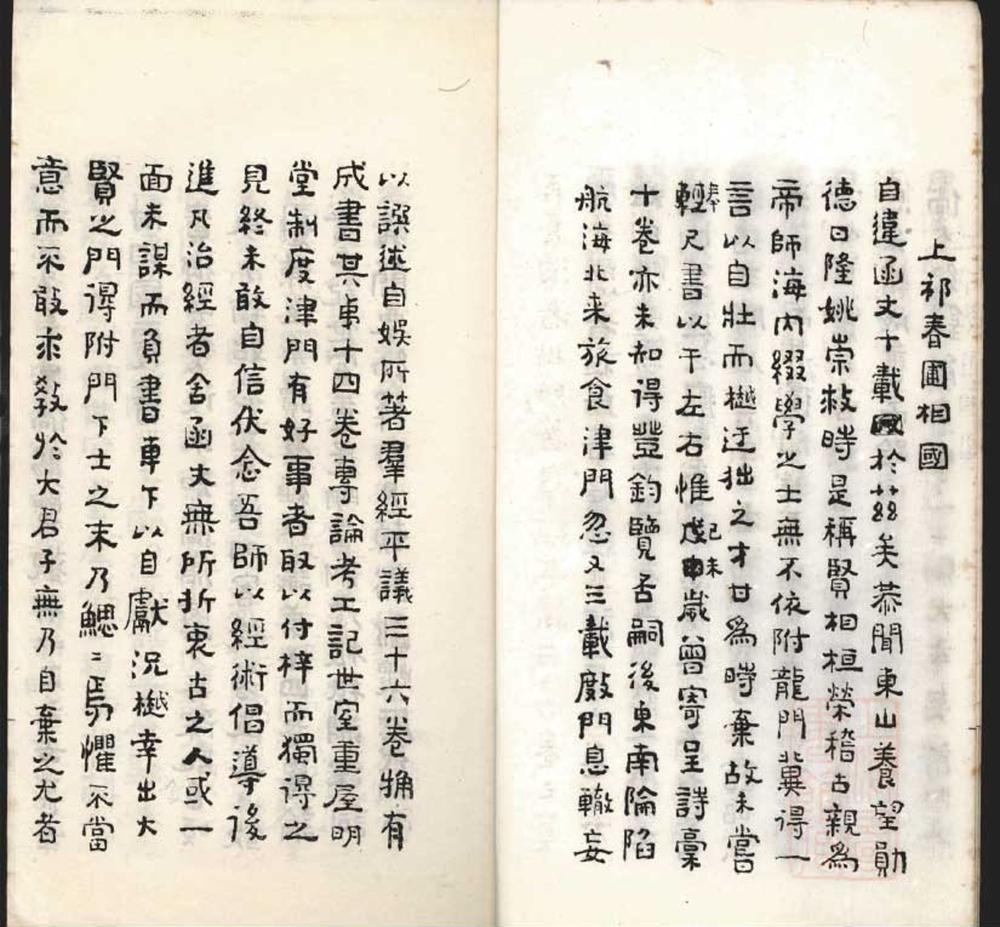 上祁春圃相國
自違函丈十載於茲矣恭聞東山養望勛
德日隆姚崇救時是稱賢相桓榮稽古親為
帝師海內綴學之士無不依附龍門冀得一
言以自壯而樾迂拙之才甘為時棄故未嘗
輕奉尺書以干左右惟己未歲曾寄呈詩稾
十卷亦未知得登鈞覽否嗣後東南陷
航海北来旅食津門忽又三載廢門息轍妄
以譔述自娛所著羣經平議三十六卷觕有
成書其弟十四卷專論考工記世室重屋明
堂制度津門有好事者取以付梓而獨得之
見終未敢自信伏念吾師以經術倡導後
進凡治經者舍函丈無所折衷古之人或一
面未謀而負書車下以自獻況樾幸出大
賢之門得附門下士之末乃鰓〻焉懼不當
意而不敢求敎於大君子無乃自棄之尤者